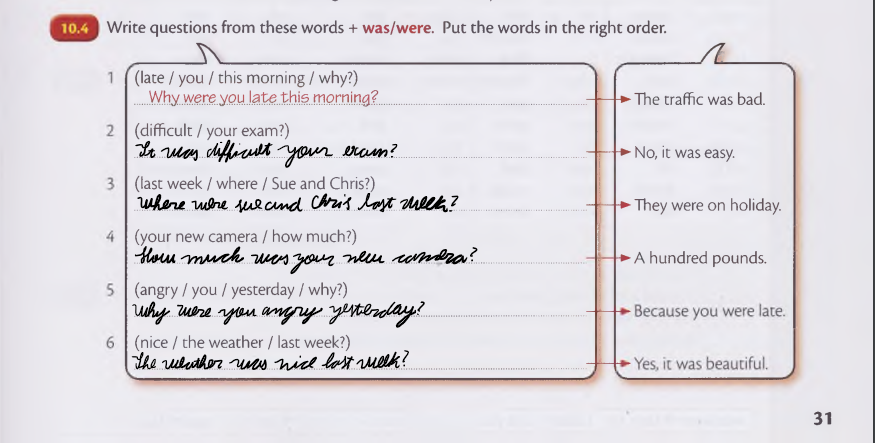 10.4 Write questions from these words + was/were. Put the words in the right order.
1 (late / you / this morning / why?)
Why were you late this morning? The traffic was bad.
2 (difficult / your exam?)
It was difficult your exam? No, it was easy.
3 (last week / where / Sue and Chris?)
Where were sue and Chris last week? They were on holiday.
4 (your new camera / how much?)
How much was your new camera? A hundred pounds.
5 (angry / you / yesterday / why?)
Why were you angry yesterday? Because you were late.
6 (nice / the weather / last week?)
The weather was nice last week? Yes, it was beautiful.
31